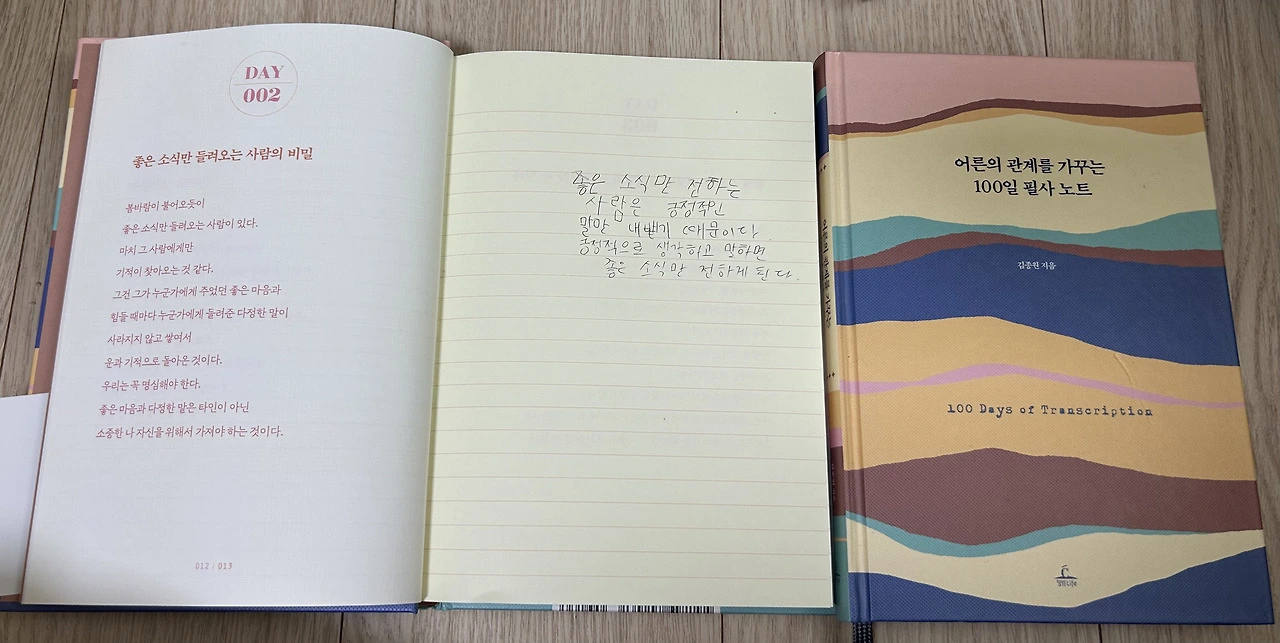 DAY
002
좋은 소식만 들려오는 사람의 비밀
봄바람이 불어오듯이
좋은 소식만 들려오는 사람이 있다.
마치 그 사람에게만
기적이 찾아오는 것 같다.
그건 그가 누군가에게 주었던 좋은 마음과
힘들 때마다 누군가에게 들려준 다정한 말이
사라지지 않고 쌓여서
운과 기적으로 돌아온 것이다.
우리는 꼭 명심해야 한다.
좋은 마음과 다정한 말은 타인이 아닌
소중한 나 자신을 위해서 가져야 하는 것이다.
012 / 013
좋은 소식만 전하는
사람은 긍정적인
말만 내뱉기 때문이다.
긍정적으로 생각하고 말하면
좋은 소식만 전하게 된다.
어른의 관계를 가꾸는
100일 필사 노트
김종원 지음
100 Days of Transcription